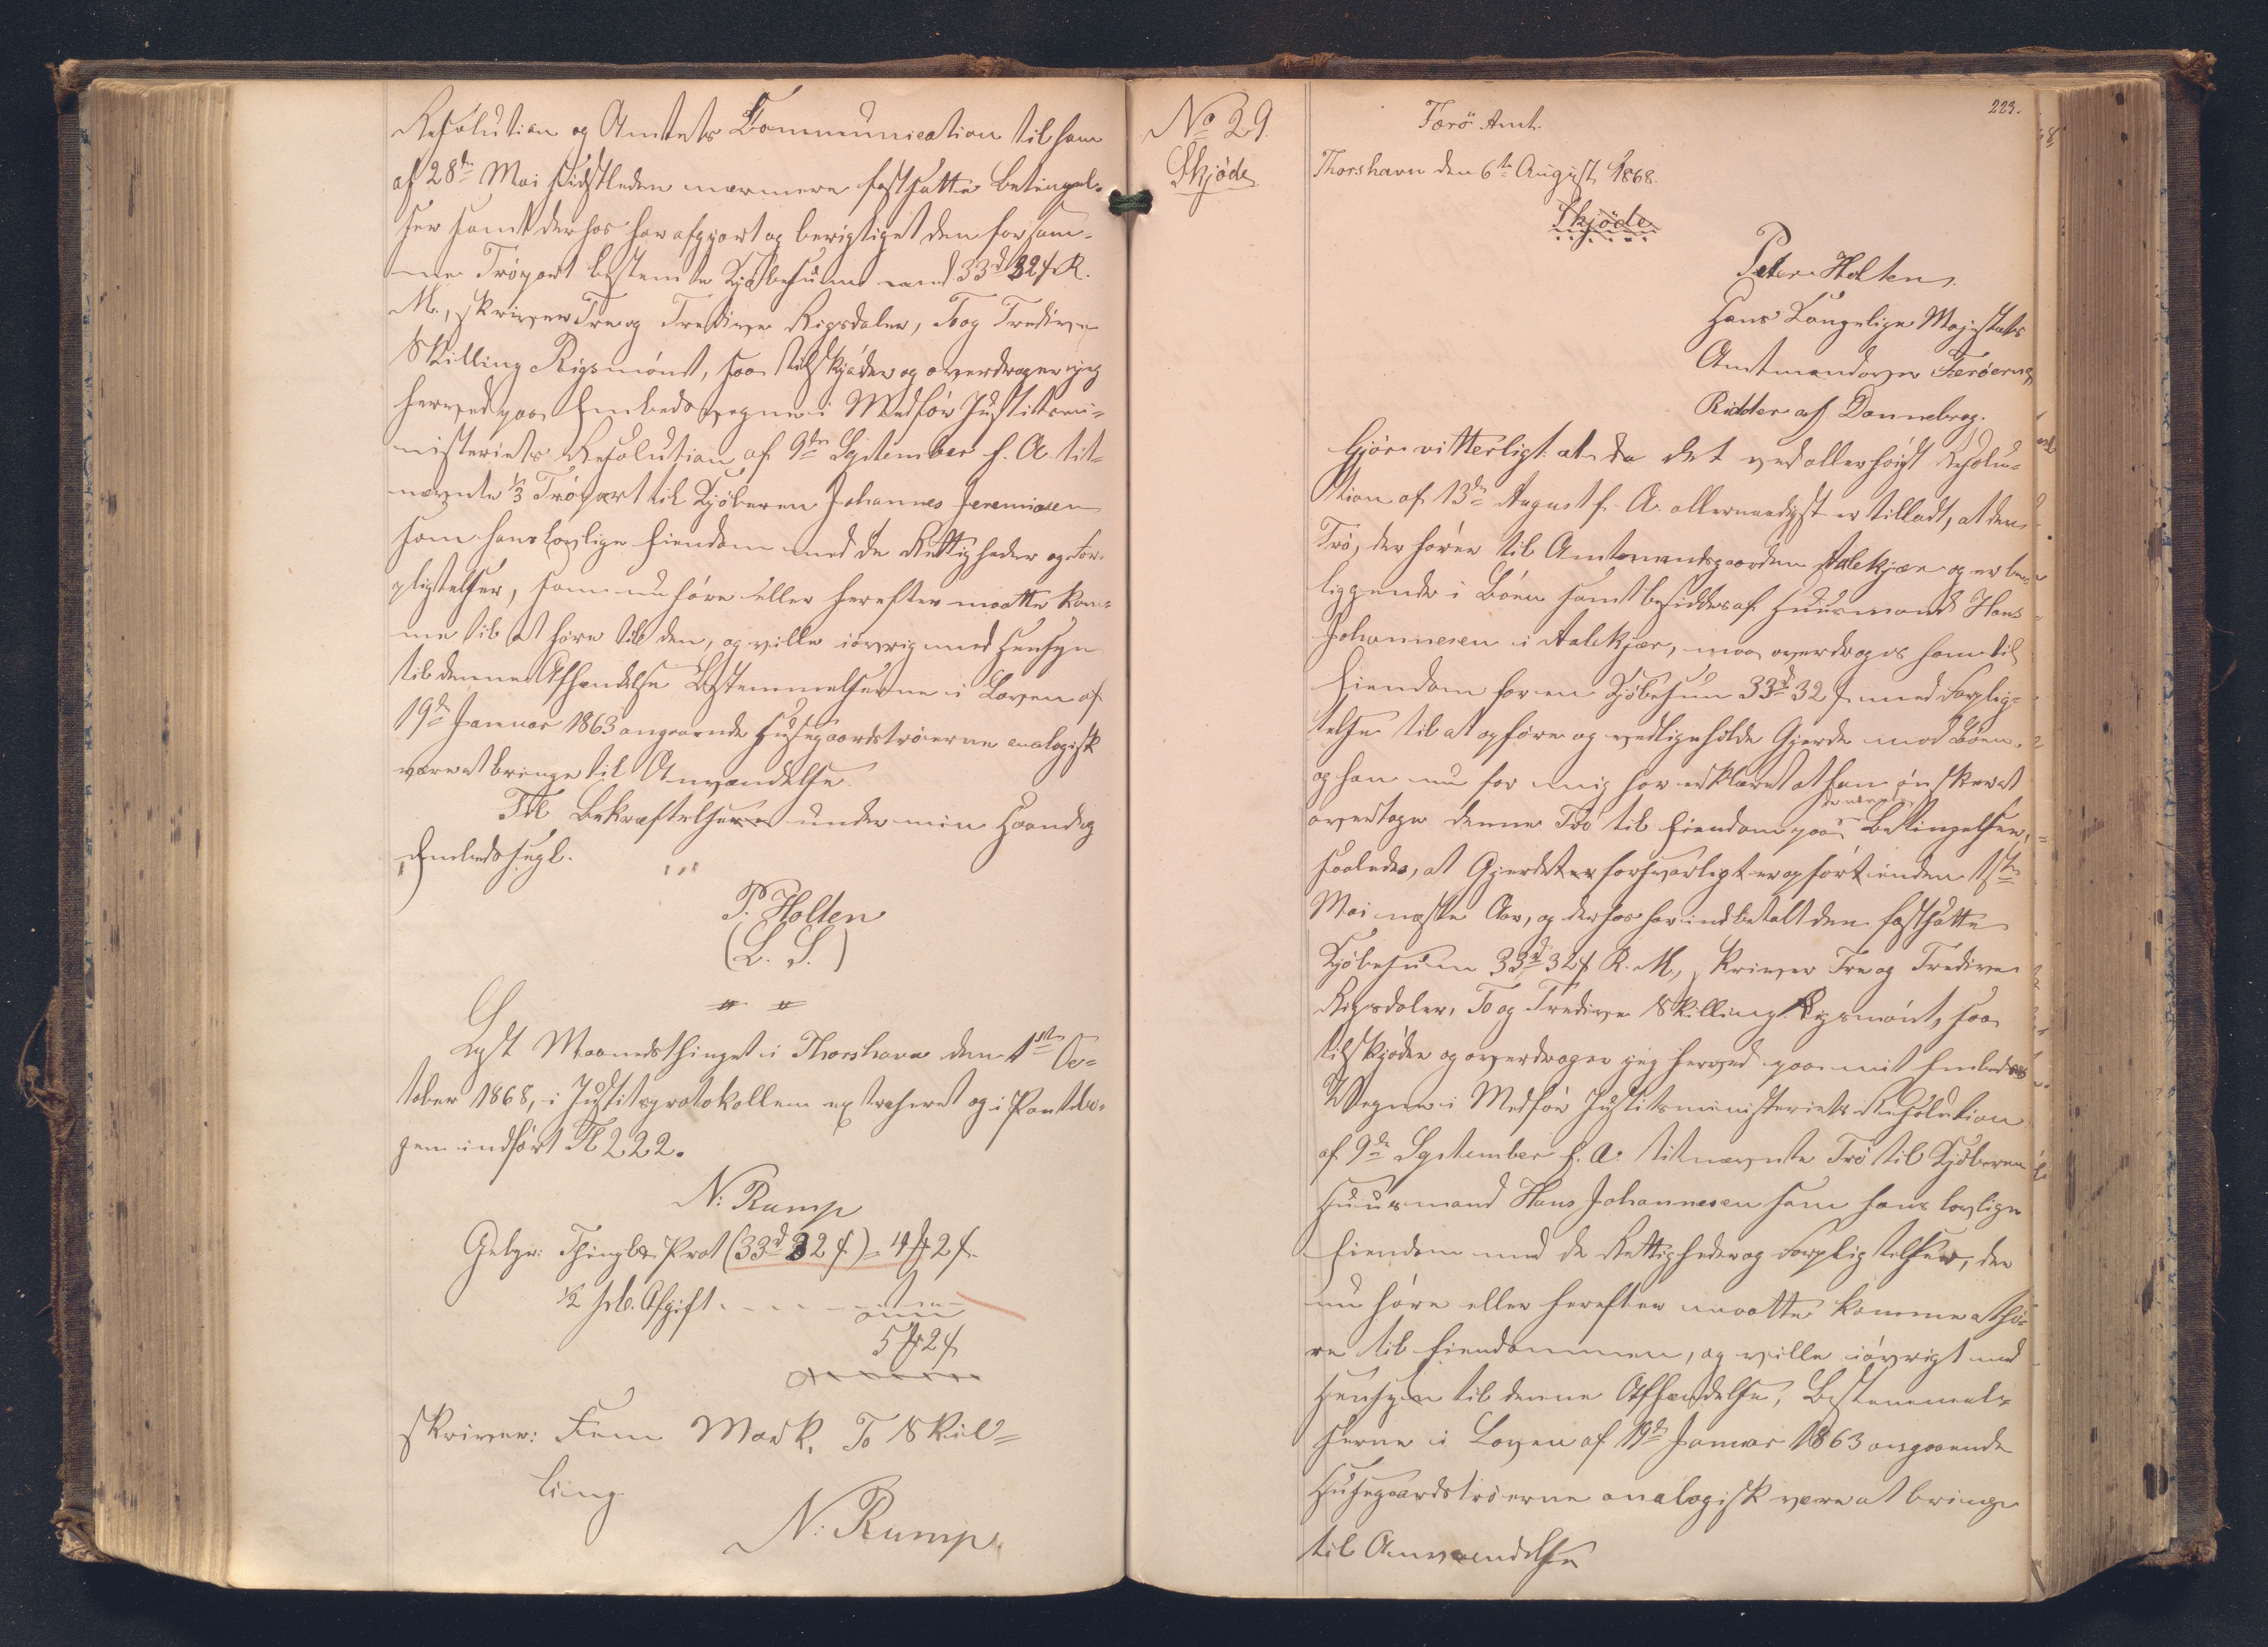 Resolution og Amtets Communication til ham
af 28de Mai sidstleden nærmere fastsatte Betingel-
ser samt derhos har afgjort og berigtiget den for sam-
me Tröpart bestemte Kjöbesum med 33rd 32 s R.
M., skriver Tre og Tredive Rigsdaler, To og Tredive
Skilling Rigsmönt, saa tilskjöder og overdrager jeg
herved paa Embedsvegne i Medför Justitsmi-
nisteriets Resolution af 9de September f. A. tit-
nævnte 1/3 Tröpart til Kjöberen Johannes Jeremiasen
som hans lovlige Eiendom med de Rettigheder og For-
pligtelser, som nu höre eller herefter maatte kom-
me til at höre til den, og ville iövrig med Hensyn
til denne Afhændelse Bestemmelserne i Loven af
19de Januar 1863 angaaende Husegaardströerne analogisk
være at bringe til Anvendelse.
Til Bekræftelse under min Haand og
Embedssegl.
P. Holten
(L. S.)
Læst Maanedsthinget i Thorshavn den 1ste Oc-
tober 1868, i Justitsprotokollen extraheret og i Pantebo-
gen indfört Fol 222.
N: Rump
Gebyr: Thinglæs. Prot (33rd 32 s) = 4 Mk 2 s.
1/2 pCt. Afgift . . . . 1 "
5 Mk 2 s
skriver: Fem Mark, To Skil=
ling.
N: Rump.
No 29.
Skjöde
223.
Færö Amt.
Thorshavn den 6te August 1868.
Skjöde
Peter Holten
Hans Kongelige Majestæts
Amtmand over Færöerne,
Ridder af Dannebrog.
Gjör vitterligt: at da det ved allerhöiest Resolu-
tion af 13de August f. A. allernaadigst er tilladt, at den
Trö, der hörer til Amtmandsgaarden Aalekjær og er be-
liggende i Böen samt besiddes af Huusmand Hans
Johannesen i Aalekjær, maa overdrages ham til
Eiendom for en Kjöbesum 33rd 32 s med Forplig-
telse til at opföre og vedligeholde Gjerde mod Böen,
og han nu for mig har erklæret at han önsker at
overtage denne Trö til Eiendom paa de nævnte Betingelser,
saaledes, at Gjerdet er forsvarligt er opfört inden 1ste
Mai næste Aar, og derhos har indbetalt den fastsatte
Kjöbesum 33rd 32 s R. M., skriver Tre og Tredive
Rigsdaler, To og Tredive Skilling Rigsmönt, saa
tilskjöder og overdrager jeg herved paa mit Embeds
Vegne i Medför Justitsministeriets Resolution
af 9de September f. A. titnævnte Trö til Kjöberen
Huusmand Hans Johannesen som hans lovlige
Eiendom med de Rettigheder og Forpligtelser, der
nu höre eller herefter maatte komme at hö-
re til Eiendommen, og ville iövrigt med
Hensyn til denne Afhændelse, Bestemmel-
serne i Loven af 19de Januar 1863 angaaende
Husegaardströerne analogisk være at bringe
til Anvendelse